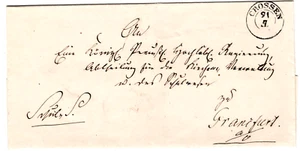 CROSSEN
21
An
Eine Königl. Preuß. Hochlöbl. Regierung
Abtheilung für die Kirchen Verwaltung
u. des Schulwesen
zu
Schul. S.
Frankfurt.
a/O